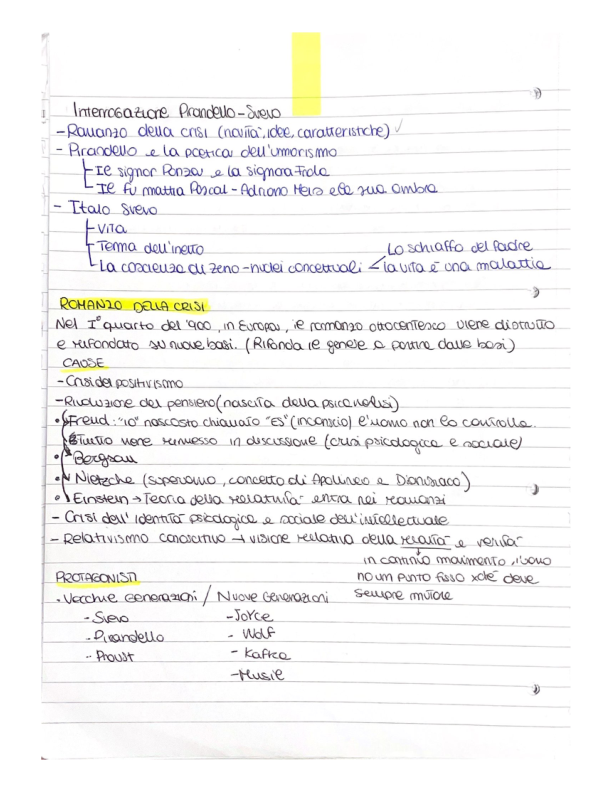 Interrogazione Pirandello-Svevo
- Romanzo della crisi (novità, idee, caratteristiche) ✓
- Pirandello e la poetica dell'umorismo
- Il signor Ponza e la signora Frola
- Il fu mattia Pascal - Adriano Meis e la sua ombra
- Italo Svevo
- Vita
- Tema dell'inetto
Lo schiaffo del Padre
- La coscienza di zeno - nuclei concettuali < la vita è una malattia
ROMANZO DELLA CRISI
Nel I° quarto del '900, in Europa, il romanzo ottocentesco viene distrutto
e rifondato su nuove basi. (Rifonda il genere a partire dalle basi)
CAUSE
- Crisi del positivismo
- Rivoluzione del pensiero (nascita della psicanalisi)
• Freud: "io" nascosto chiamato "ES" (inconscio) e l'uomo non lo controlla.
Tutto viene rimesso in discussione (crisi psicologica e sociale)
• Bergson
• Nietzche (superuomo, concetto di Apollineo e Dionisiaco)
• Einstein → Teoria della relatività entra nei romanzi
- Crisi dell'identità psicologica e sociale dell'intellettuale
- Relativismo conoscitivo → visione relativa della realtà e verità
in continuo movimento, l'uomo
no un punto fisso xché deve
sempre mutare
PROTAGONISTI
• Vecchie Generazioni / Nuove Generazioni
- Svevo
- Joyce
- Pirandello
- Wolf
- Proust
- Kafka
- Musil